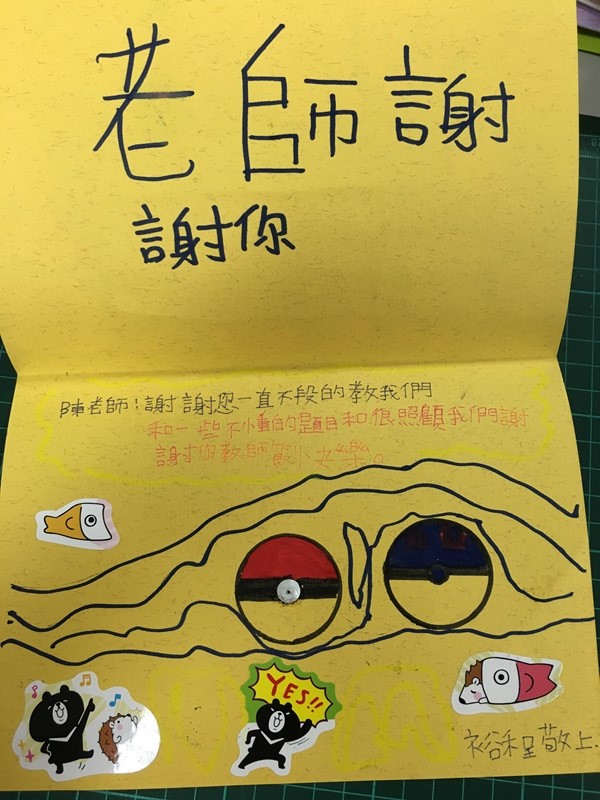 老師謝
謝你
陳老師:謝謝您一直不段的教我們
和一些不懂的題目和很照顧我們謝
謝你教師節快樂。
YES!!
裕程敬上.